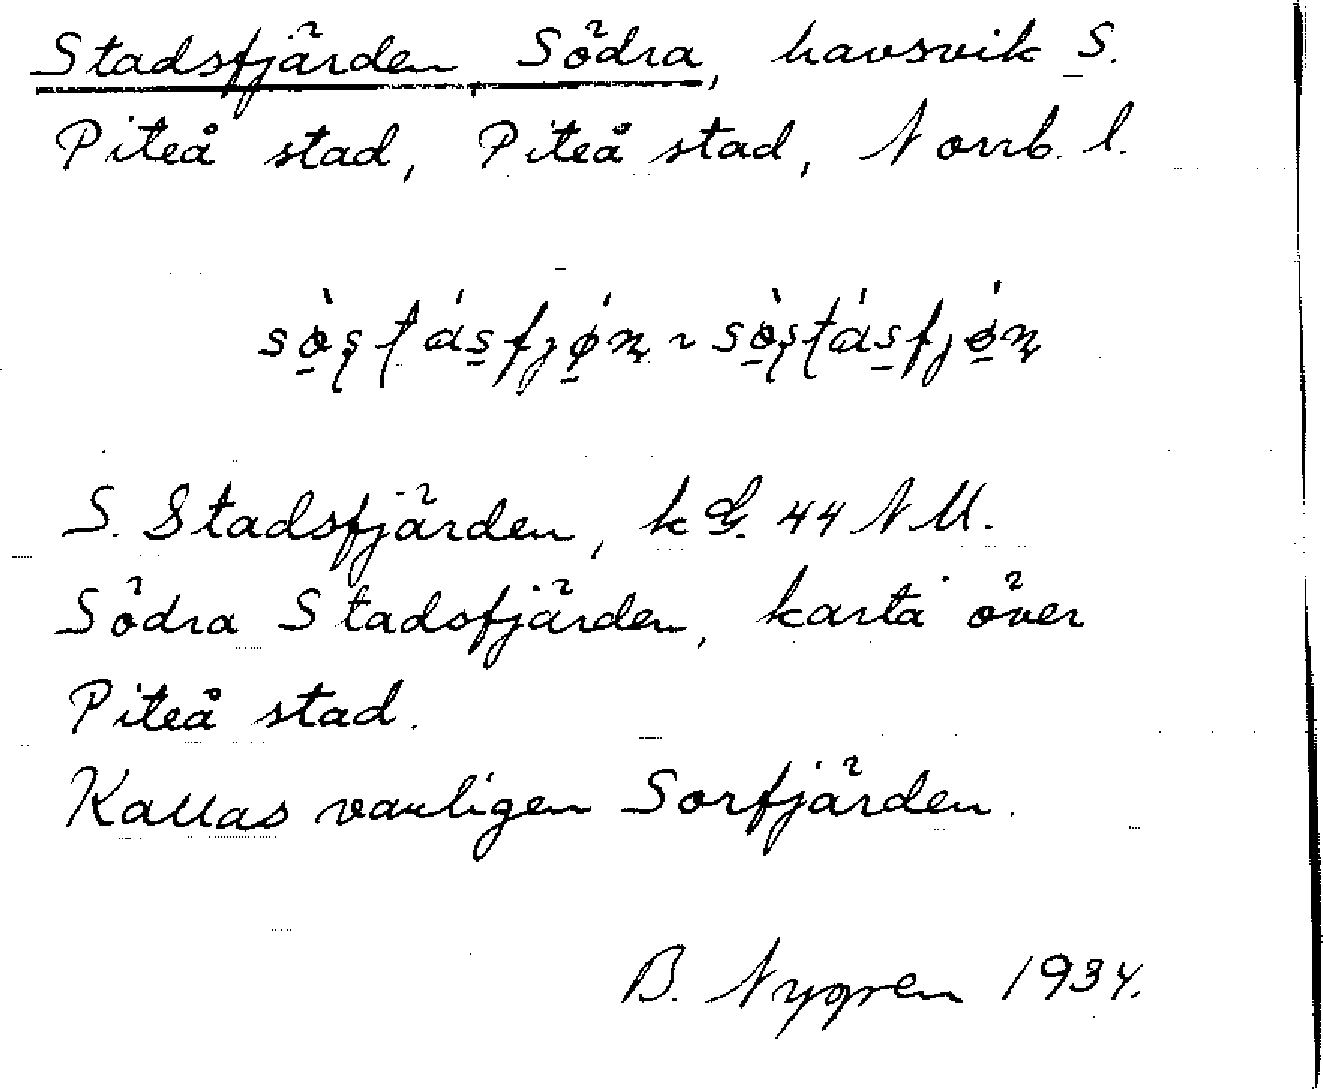 Stadsfjärden, Södra, havsvik S.
Piteå stad, Piteå stad, Norrb. l.
S. Stadsfjärden, k G. 44 N M.
Södra Stadsfjärden, karta över
Piteå stad.
Kallas vanligen Sorfjärden.
B. Nygren 1934.